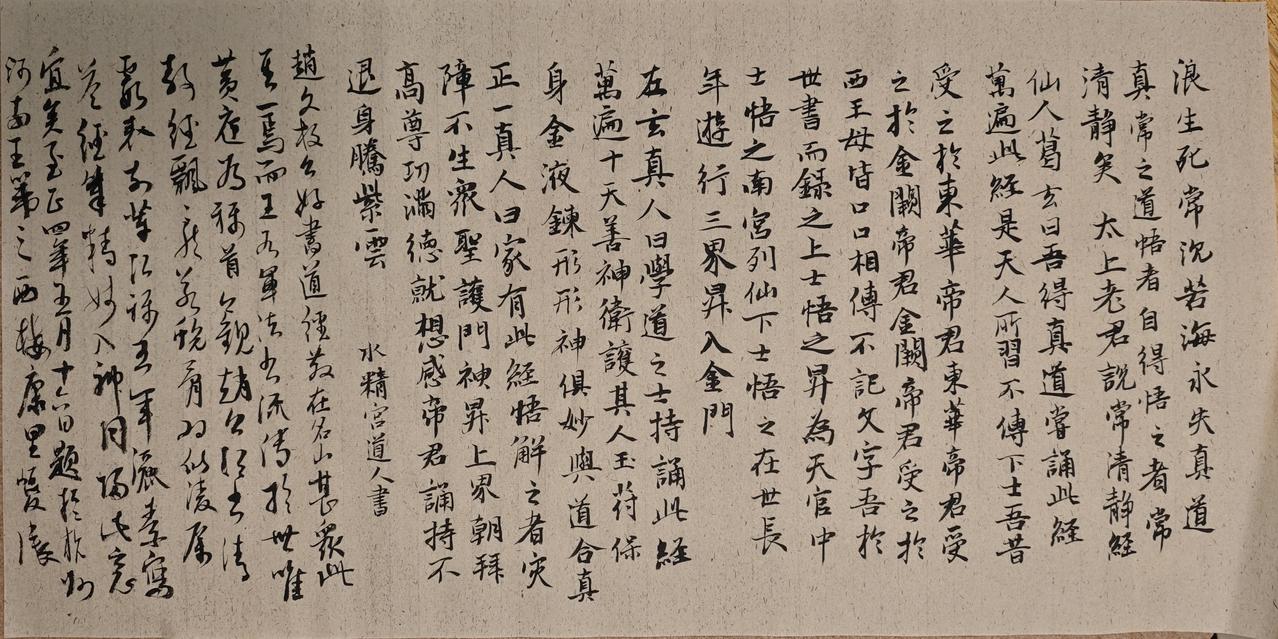 浪生死常沉苦海永失真道
真常之道悟者自得悟之者常
清靜矣 太上老君說常清靜經
仙人葛玄曰吾得真道嘗誦此經
萬遍此經是天人所習不傳下士吾昔
受之於東華帝君東華帝君受
之於金闕帝君金闕帝君受之於
西王母皆口口相傳不記文字吾於
世書而録之上士悟之昇為天官中
士悟之南宮列仙下士悟之在世長
年遊行三界昇入金門
左玄真人曰學道之士持誦此經
萬遍十天善神衛護其人玉符保
身金液鍊形形神俱妙與道合真
正一真人曰家有此經悟解之者灾
障不生衆聖護門神昇上界朝拜
高尊功滿德就想感帝君誦持不
退身騰紫雲
水精宮道人書
趙文敏公好書道經散在名山甚衆此
其一焉而王右軍法書流傳於世唯
黄庭為稱首今觀趙公所書清
静經飄飄若
宜矣至正四年五月十六日題於杭州
河南王第之西樓康里巎